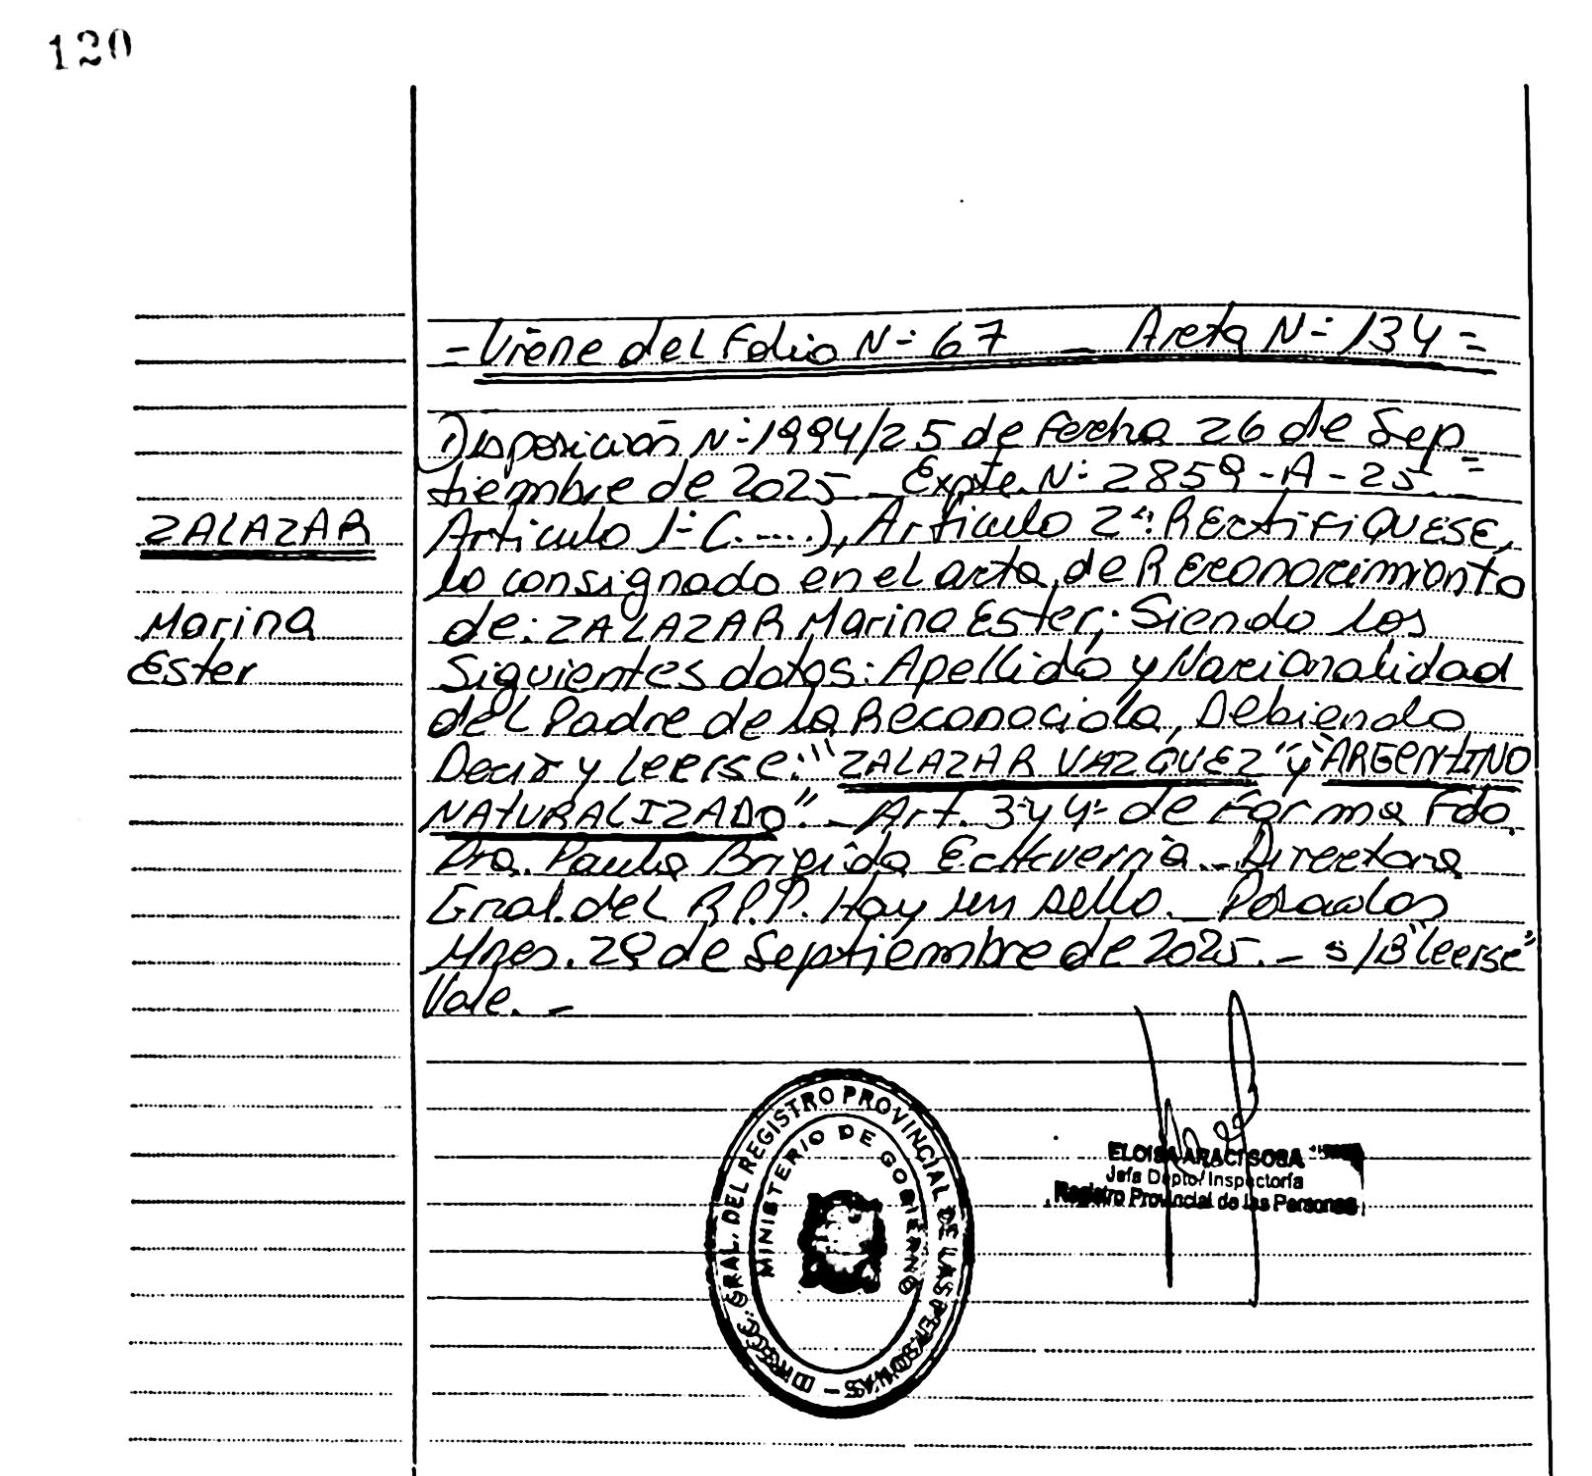 120
= Viene del Folio N- 67 _ Acta N- 134 =
Disposición N- 1994/25 de Fecha 26 de Sep
tiembre de 2025 _ Expte. N- 2859 - A - 25. =
ZALAZAR
Articulo 1- (.....), Articulo 2- RECTIFIQUESE,
lo consignado en el acta de Reconocimiento
Marina
de: ZALAZAR Marina Ester; Siendo los
Ester
Siguientes datos: Apellido y Nacionalidad
del Padre de la Reconocida, Debiendo
Decir y leerse: "ZALAZAR VAZQUEZ" y "ARGENTINO
NATURALIZADO". - Art. 3- y 4- de Forma Fdo.
Dra. Paula Brigida Echeverria _ Directora
Gral. del R.P.P. Hay un sello. _ Posadas
Mnes. 29 de Septiembre de 2025. - s/B "leerse"
Vale. -
DIRECC. GRAL. DEL REGISTRO PROVINCIAL DE LAS PERSONAS -
MINISTERIO DE GOBIERNO
ELOISA ARACI SOSA
Jefa Depto/ Inspectoría
Registro Provincial de las Personas